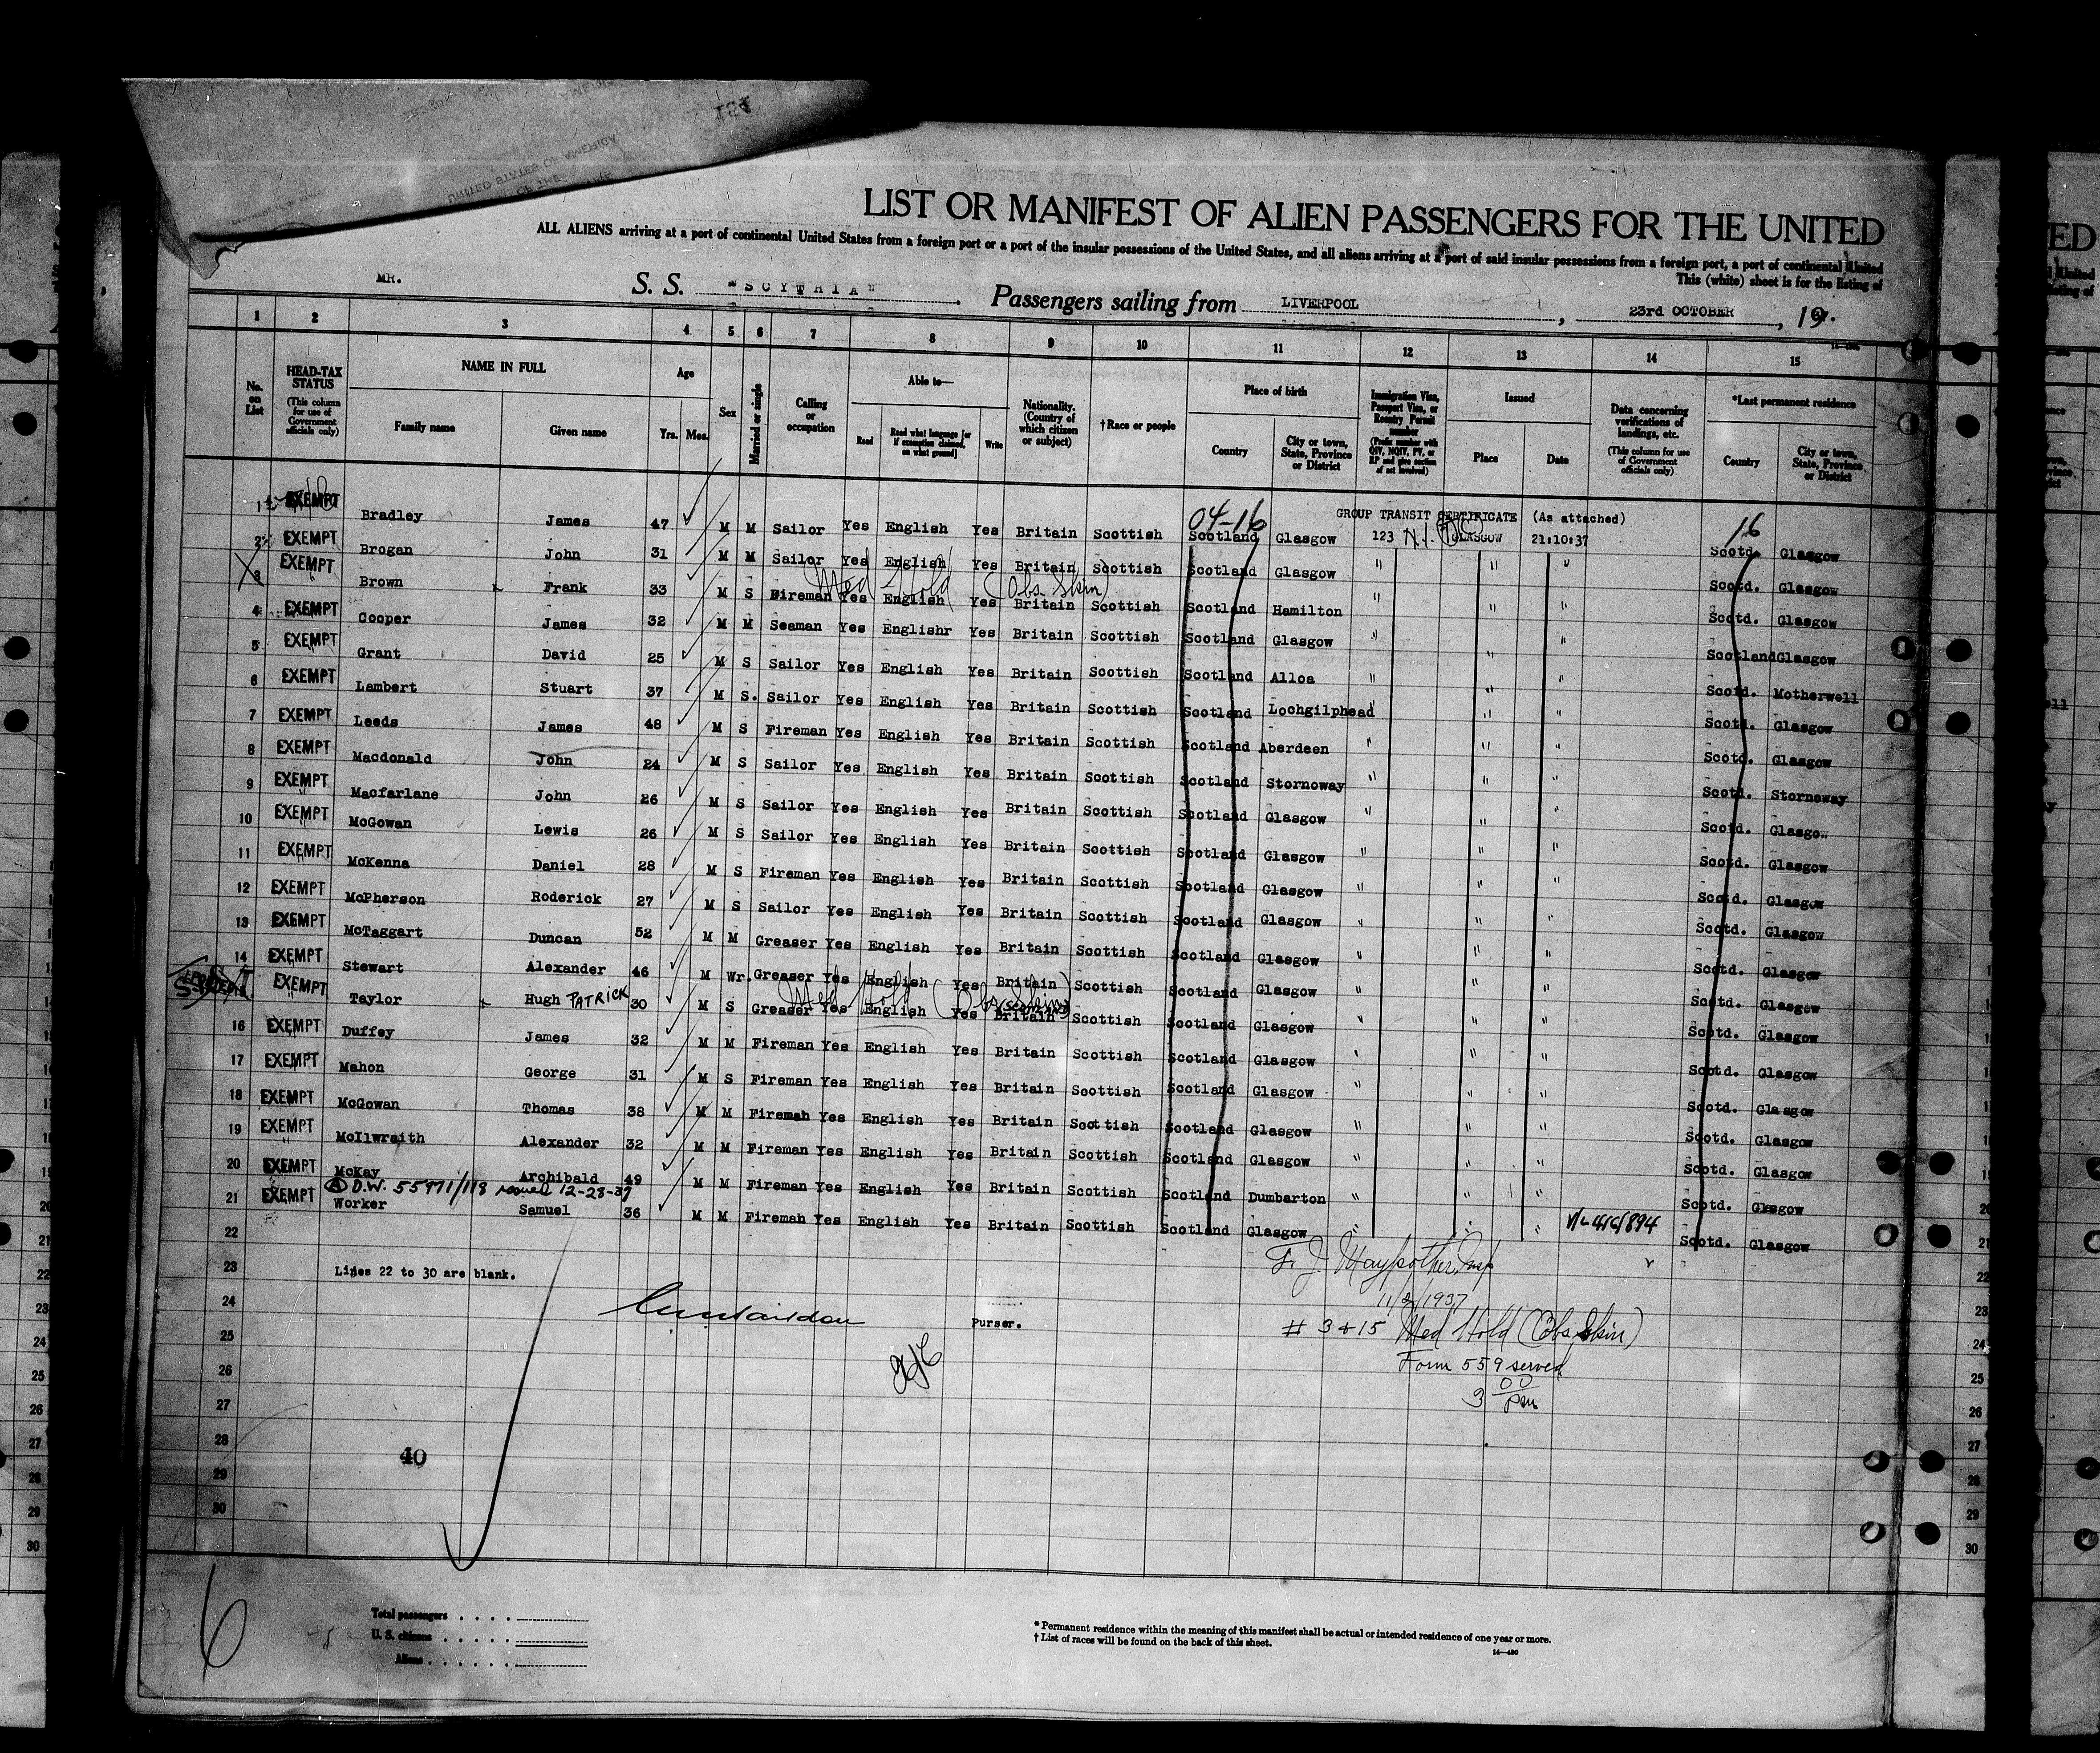 LIST OR MANIFEST OF ALIEN PASSENGERS FOR THE UNITED
ALL ALIENS arriving at a port of continental United States from a foreign port or a port of the insular possessions of the United States, and all aliens arriving at a port of said insular possessions from a foreign port, a port of continental United
This (white) sheet is for the listing of
MR. S. S. "SCYTHIA" . Passengers sailing from LIVERPOOL , 23rd OCTOBER , 19
1 2 3 4 5 6 7 8 9 10 11 12 13 14 15
No. on List
HEAD-TAX STATUS (This column for use of Government officials only)
NAME IN FULL Family name Given name
Age Yrs. Mos.
Sex
Married or single
Calling or occupation
Able to— Read Read what language [or if exemption claimed, on what ground] Write
Nationality. (Country of which citizen or subject)
†Race or people
Place of birth Country City or town, State, Province or District
Immigration Visa, Passport Visa, or Reentry Permit number (Prefix number with QIV, NQIV, PV, or RP and give section of act involved)
Issued Place Date
Data concerning verifications of landings, etc. (This column for use of Government officials only)
*Last permanent residence Country City or town, State, Province or District
04-16 GROUP TRANSIT CERTIFICATE (As attached) 16
1 EXEMPT Bradley James 47 M M Sailor Yes English Yes Britain Scottish Scotland Glasgow 123 GLASGOW 21:10:37 Scotd. Glasgow
2 EXEMPT Brogan John 31 M M Sailor Yes English Yes Britain Scottish Scotland Glasgow " " " Scotd. Glasgow
Med Hold (Obs Skin)
3 EXEMPT Brown Frank 33 M S Fireman Yes English Yes Britain Scottish Scotland Hamilton " " " Scotd. Glasgow
4 EXEMPT Cooper James 32 M M Seaman Yes Englishr Yes Britain Scottish Scotland Glasgow " " " Scotland Glasgow
5 EXEMPT Grant David 25 M S Sailor Yes English Yes Britain Scottish Scotland Alloa " " " Scotd. Motherwell
6 EXEMPT Lambert Stuart 37 M S. Sailor Yes English Yes Britain Scottish Scotland Lochgilphead " " " Scotd. Glasgow
7 EXEMPT Leeds James 48 M S Fireman Yes English Yes Britain Scottish Scotland Aberdeen " " " Scotd. Glasgow
8 EXEMPT Macdonald John 24 M S Sailor Yes English Yes Britain Scottish Scotland Stornoway " " " Scotd. Stornoway
9 EXEMPT Macfarlane John 26 M S Sailor Yes English Yes Britain Scottish Scotland Glasgow " " " Scotd. Glasgow
10 EXEMPT McGowan Lewis 26 M S Sailor Yes English Yes Britain Scottish Scotland Glasgow " " " Scotd. Glasgow
11 EXEMPT McKenna Daniel 28 M S Fireman Yes English Yes Britain Scottish Scotland Glasgow " " " Scotd. Glasgow
12 EXEMPT McPherson Roderick 27 M S Sailor Yes English Yes Britain Scottish Scotland Glasgow " " " Scotd. Glasgow
13 EXEMPT McTaggart Duncan 52 M M Greaser Yes English Yes Britain Scottish Scotland Glasgow " " " Scotd. Glasgow
14 EXEMPT Stewart Alexander 46 M Wr. Greaser Yes English Yes Britain Scottish Scotland Glasgow " " " Scotd. Glasgow
Med Hold (Obs Skin)
EXEMPT Taylor Hugh PATRICK 30 M S Greaser Yes English Yes Britain Scottish Scotland Glasgow " " " Scotd. Glasgow
16 EXEMPT Duffey James 32 M M Fireman Yes English Yes Britain Scottish Scotland Glasgow " " " Scotd. Glasgow
17 EXEMPT Mahon George 31 M S Fireman Yes English Yes Britain Scottish Scotland Glasgow " " " Scotd. Glasgow
18 EXEMPT McGowan Thomas 38 M M Fireman Yes English Yes Britain Scottish Scotland Glasgow " " " Scotd. Glasgow
19 EXEMPT McIlwraith Alexander 32 M M Fireman Yes English Yes Britain Scottish Scotland Glasgow " " " Scotd. Glasgow
20 EXEMPT McKay Archibald 49 M M Fireman Yes English Yes Britain Scottish Scotland Dumbarton " " " Scotd. Glasgow
D.W. 55971/118 issued 12-28-37
21 EXEMPT Worker Samuel 36 M M Fireman Yes English Yes Britain Scottish Scotland Glasgow " " " V/L 416/894 Scotd. Glasgow
22
23 Lines 22 to 30 are blank.
11/2/1937
24
Purser. # 3 & 15 Med Hold (Obs Skin)
25
Form 559 served
26
3 00 pm
27
28
40
29
30
6
Total passengers
U. S. citizens
Aliens
* Permanent residence within the meaning of this manifest shall be actual or intended residence of one year or more.
† List of races will be found on the back of this sheet.
14—430